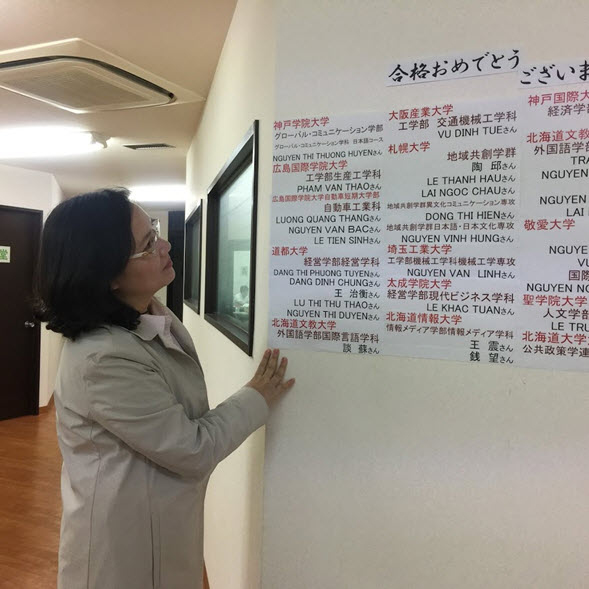 合格おめでとう
ございま
神戸学院大学
グローバル・コミュニケーション学部
グローバル・コミュニケーション学科 日本語コース
NGUYEN THI THUONG HUYENさん
広島国際学院大学
工学部生産工学科
PHAM VAN THAOさん
広島国際学院大学自動車短期大学部
自動車工業科
LUONG QUANG THANGさん
NGUYEN VAN BACさん
LE TIEN SINHさん
道都大学
経営学部経営学科
DANG THI PHUONG TUYENさん
DANG DINH CHUNGさん
王 治衡さん
LU THI THU THAOさん
NGUYEN THI DUYENさん
北海道文教大学
外国語学部国際言語学科
談 蘇さん
大阪産業大学
工学部 交通機械工学科
VU DINH TUEさん
札幌大学
地域共創学群
陶 邱さん
LE THANH HAUさん
LAI NGOC CHAUさん
地域共創学群異文化コミュニケーション専攻
DONG THI HIENさん
地域共創学群日本語・日本文化専攻
NGUYEN VINH HUNGさん
埼玉工業大学
工学部機械工学科機械工学専攻
NGUYEN VAN LINHさん
太成学院大学
経営学部現代ビジネス学科
LE KHAC TUANさん
北海道情報大学
情報メディア学部情報メディア学科
王 震さん
銭 望さん
神戸国際大
経済学部
北海道文教
外国語学部
TRA
NGUYEN VA
NGUYEN
LAI
敬愛大学
NGUYE
VU
国際
NGUYEN NGO
聖学院大学
人文学部
LE TRU
北海道大学
公共政策学連